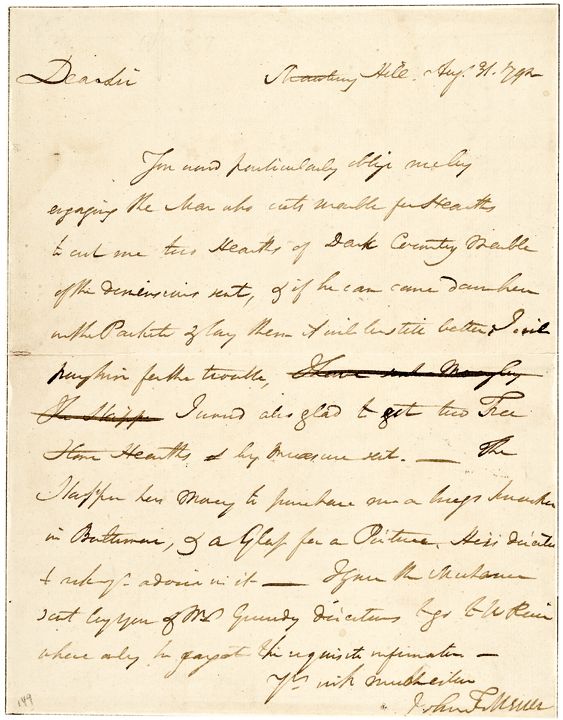 Dear Sir
Hill. Aug. 31. 1792
You woud particularly oblige me by
engaging the Man who cuts marble for Hearths
to cut me two Hearths of Dark Country Marble
of the dimensions sent, & if he can come down here
in the Packett & lay them it will be still better; I will
pay him for the trouble, I have sent Money by
the Skipper I woud also glad to get two Free
Stone Hearths by measure sent. — The
Skipper has Money to purchase me a
in Baltimore, & a Glass for a Picture. He is directed
to advice in it — I gave the
sent by you & Mr Grundy directions to go to
where only he can get the requisite information —
Yrs with much esteem
John F. Mercer
149